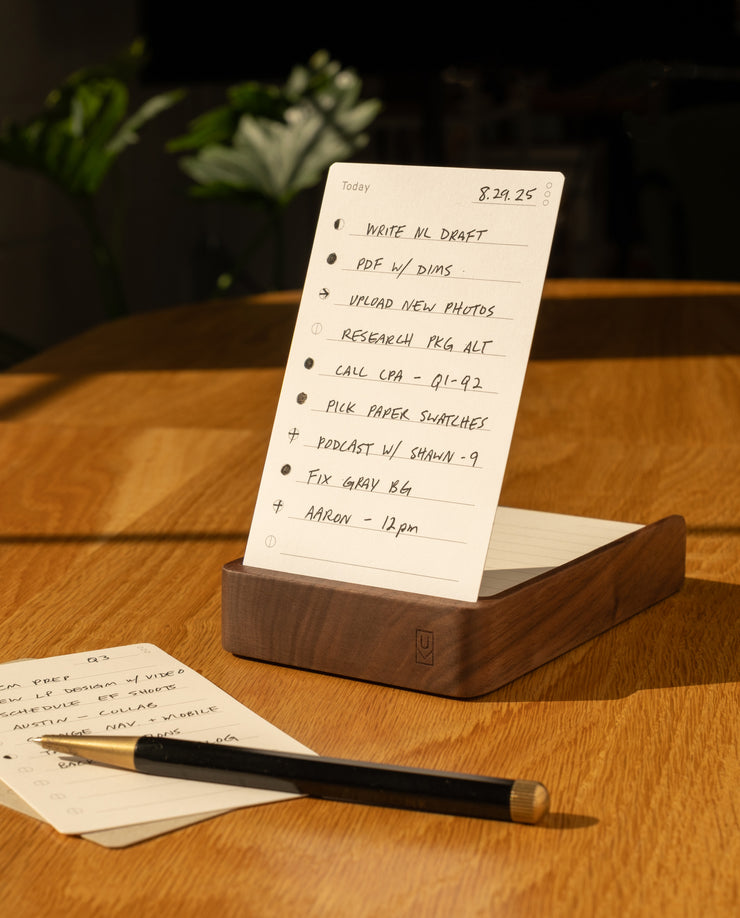 Today
8.29.25
WRITE NL DRAFT
PDF W/ DIMS
UPLOAD NEW PHOTOS
RESEARCH PKG ALT
CALL CPA - Q1-Q2
PICK PAPER SWATCHES
PODCAST W/ SHAWN - 9
FIX GRAY BG
AARON - 12pm
U
Q3
PREP
LP DESIGN W/ VIDEO
SCHEDULE EF SHOOTS
AUSTIN - COLLAB
NAV + MOBILE